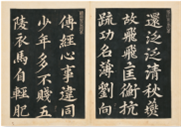 還泛泛清秋燕
故飛飛匡衡抗
疏功名薄劉向
傳經心事違同
少年多不賤五
陵衣馬自輕肥